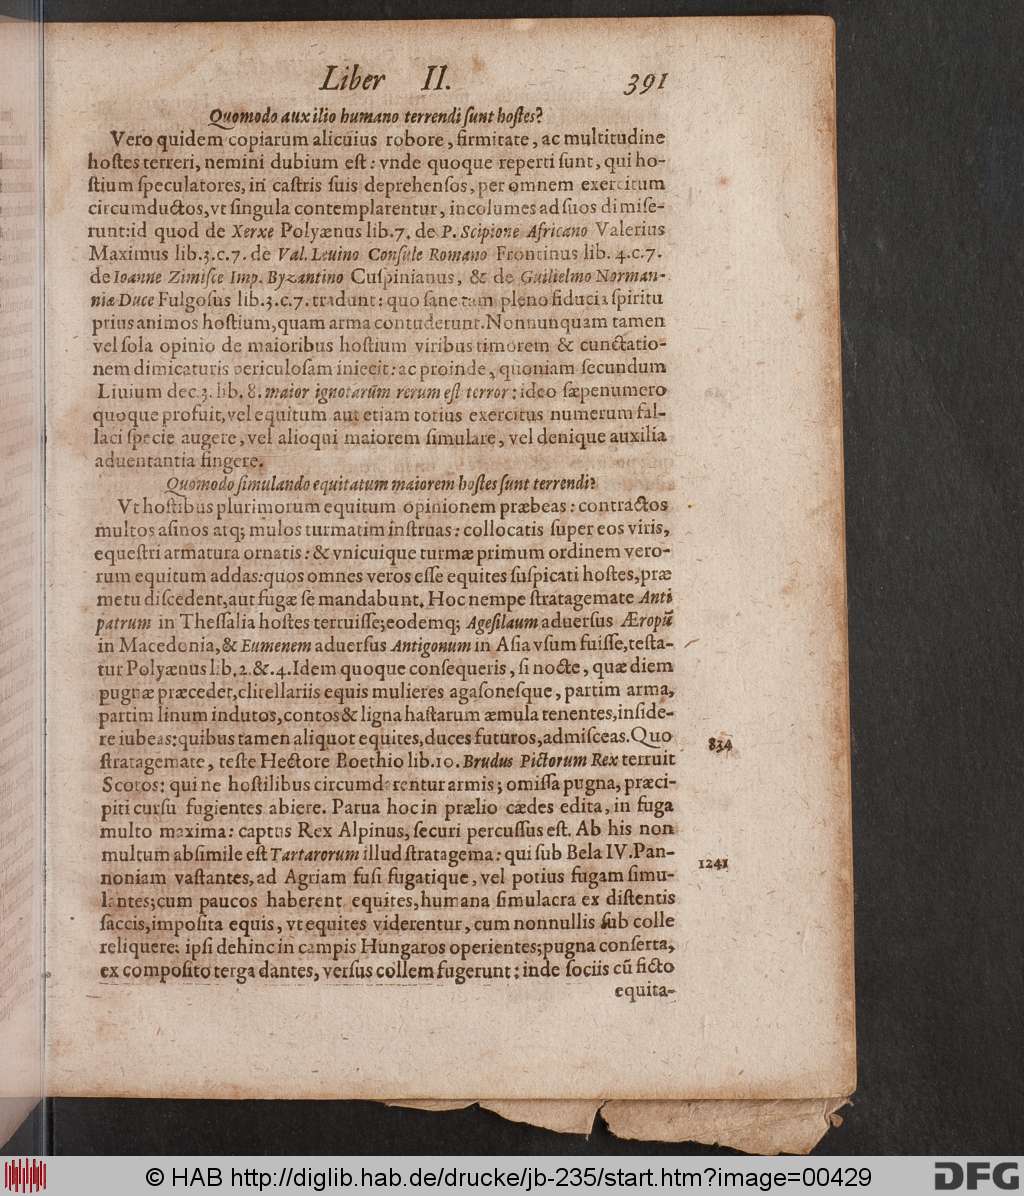 Liber II. 391
Quomodo auxilio humano terrendi ſunt hoſtes?
Vero quidem copiarum alicuius robore, firmitate, ac multitudine
hoſtes terreri, nemini dubium eſt: vnde quoque reperti ſunt, qui ho-
ſtium ſpeculatores, in caſtris ſuis deprehenſos, per omnem exercitum
circumductos, vt ſingula contemplarentur, incolumes ad ſuos dimiſe-
runt: id quod de Xerxe Polyænus lib. 7. de P. Scipione Africano Valerius
Maximus lib. 3. c. 7. de Val. Leuino Conſule Romano Frontinus lib. 4. c. 7.
de Ioanne Zimiſce Imp. Byzantino Cuſpinianus, & de Guilielmo Norman-
niæ Duce Fulgoſus lib. 3. c. 7. tradunt: quo ſane tam pleno fiducia ſpiritu
prius animos hoſtium, quam arma contuderunt. Nonnunquam tamen
vel ſola opinio de maioribus hoſtium viribus timorem & cunctatio-
nem dimicaturis periculoſam iniecit: ac proinde, quoniam ſecundum
Liuium dec. 3. lib. 8. maior ignotarũm rerum eſt terror: ideo ſæpenumero
quoque profuit, vel equitum aut etiam totius exercitus numerum fal-
laci ſpecie augere, vel alioqui maiorem ſimulare, vel denique auxilia
aduentantia fingere.
Quomodo ſimulando equitatum maiorem hoſtes ſunt terrendi?
Vt hoſtibus plurimorum equitum opinionem præbeas: contractos
multos aſinos atq; mulos turmatim inſtruas: collocatis ſuper eos viris,
equeſtri armatura ornatis: & vnicuique turmæ primum ordinem vero-
rum equitum addas: quos omnes veros eſſe equites ſuſpicati hoſtes, præ
metu diſcedent, aut fugæ ſe mandabunt. Hoc nempe ſtratagemate Anti
patrum in Theſſalia hoſtes terruiſſe; eodemq; Ageſilaum aduerſus Æropũ
in Macedonia, & Eumenem aduerſus Antigonum in Aſia vſum fuiſſe, teſta-
tur Polyænus lib. 2. &. 4. Idem quoque conſequeris, ſi nocte, quæ diem
pugnæ præcedet, clitellariis equis mulieres agaſoneſque, partim arma,
partim linum indutos, contos & ligna haſtarum æmula tenentes, inſide-
re iubeas: quibus tamen aliquot equites, duces futuros, admiſceas. Quo
ſtratagemate, teſte Hectore Boethio lib. 10. Brudus Pictorum Rex terruit 834
Scotos: qui ne hoſtilibus circumdarentur armis; omiſſa pugna, præci-
piti curſu fugientes abiere. Parua hoc in prælio cædes edita, in fuga
multo maxima: captus Rex Alpinus, ſecuri percuſſus eſt. Ab his non
multum abſimile eſt Tartarorum illud ſtratagema: qui ſub Bela IV. Pan- 1241
noniam vaſtantes, ad Agriam fuſi fugatique, vel potius fugam ſimu-
lantes; cum paucos haberent equites, humana ſimulacra ex diſtentis
ſaccis, impoſita equis, vt equites viderentur, cum nonnullis ſub colle
reliquere: ipſi dehinc in campis Hungaros operientes; pugna conſerta,
ex compoſito terga dantes, verſus collem fugerunt: inde ſociis cũ ficto
equita-
© HAB http://diglib.hab.de/drucke/jb-235/start.htm?image=00429 DFG